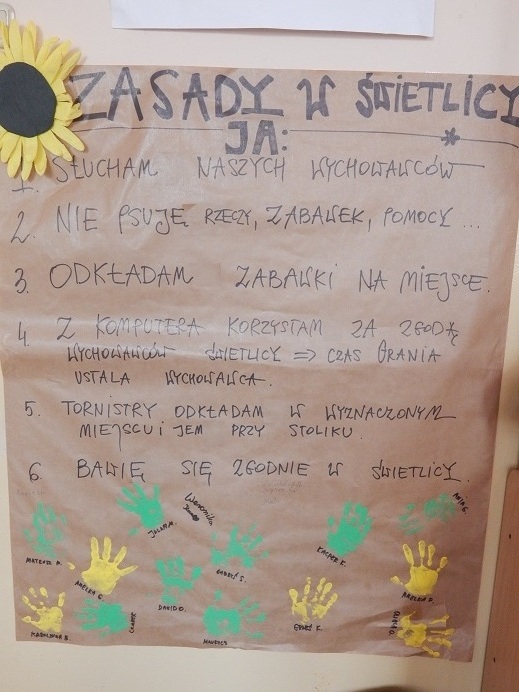 ZASADY W ŚWIETLICY
JA:
1. SŁUCHAM NASZYCH WYCHOWAWCÓW
2. NIE PSUJĘ RZECZY, ZABAWEK, POMOCY ...
3. ODKŁADAM ZABAWKI NA MIEJSCE.
4 Z KOMPUTERA KORZYSTAM ZA ZGODĄ
WYCHOWAWCÓW ŚWIETLICY => CZAS GRANIA
USTALA WYCHOWAWCA.
5. TORNISTRY ODKŁADAM W WYZNACZONYM
MIEJSCU I JEM PRZY STOLIKU.
6. BAWIĘ SIĘ ZGODNIE W ŚWIETLICY.
Weronika
JULIA M.
KACPER K.
MATEUSZ P.
AMELKA G.
DAWID O.
AMELKA P.